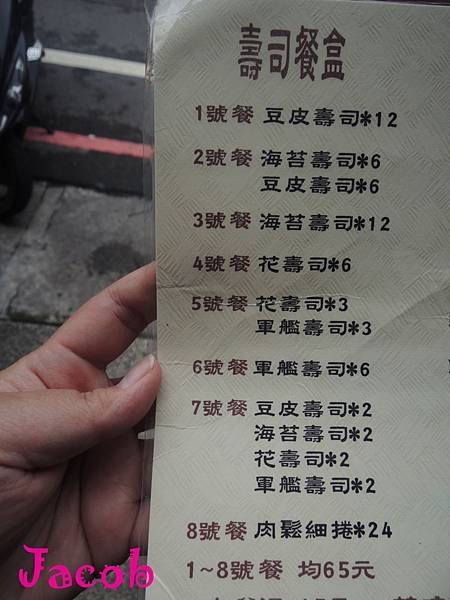 壽司餐盒
1號餐 豆皮壽司*12
2號餐 海苔壽司*6
豆皮壽司*6
3號餐 海苔壽司*12
4號餐 花壽司*6
5號餐 花壽司*3
軍艦壽司*3
6號餐 軍艦壽司*6
7號餐 豆皮壽司*2
海苔壽司*2
花壽司*2
軍艦壽司*2
8號餐 肉鬆細捲*24
1~8號餐 均65元
Jacob